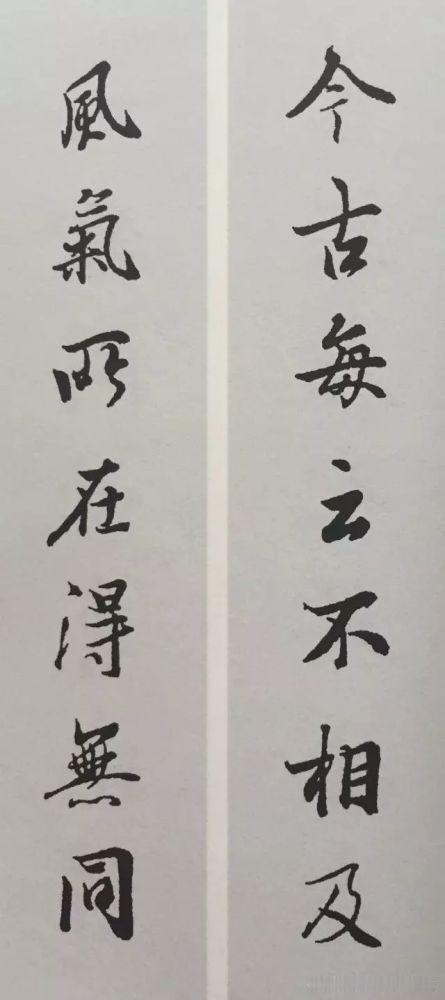 今古每云不相及
風氣所在得無同